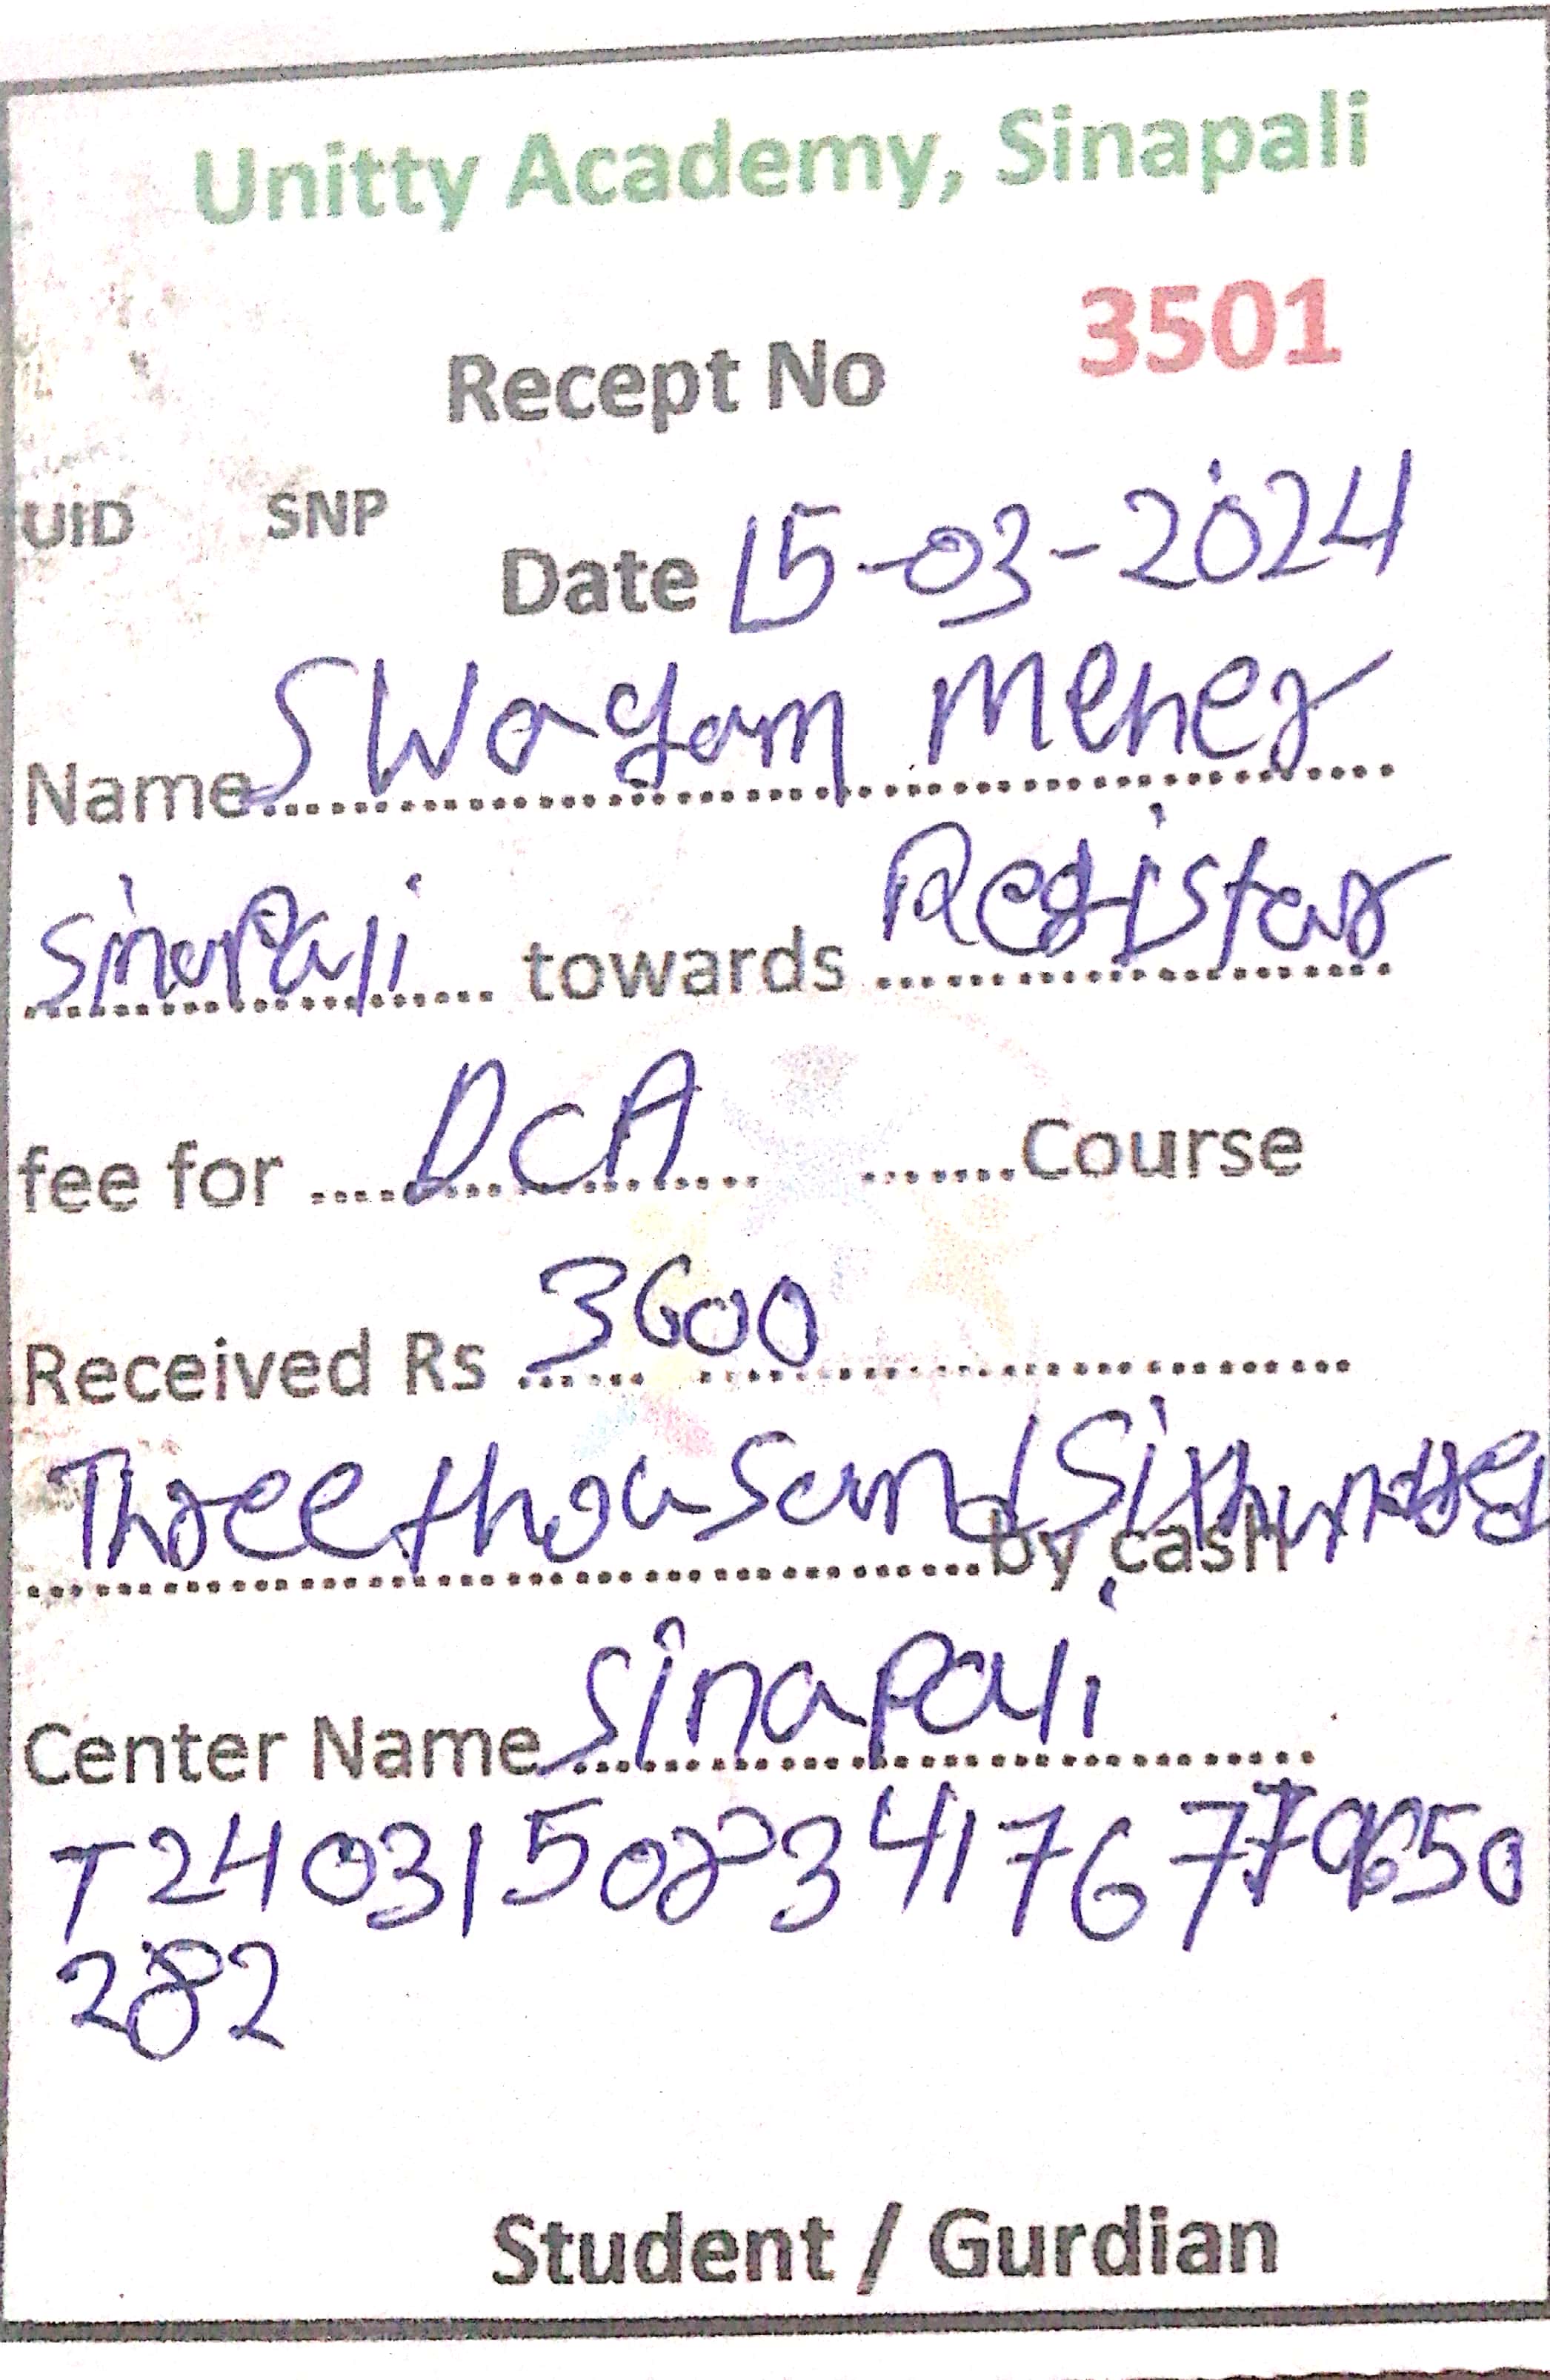 Unitty Academy, Sinapali
Recept No 3501
UID SNP
Date 15-03-2024
Name SWayam Meher
SinaPali towards Register
fee for DCA Course
Received Rs 3600
Three thousand Six hundred by cash
Center Name Sinapali
T24031508234176779650
282
Student / Gurdian